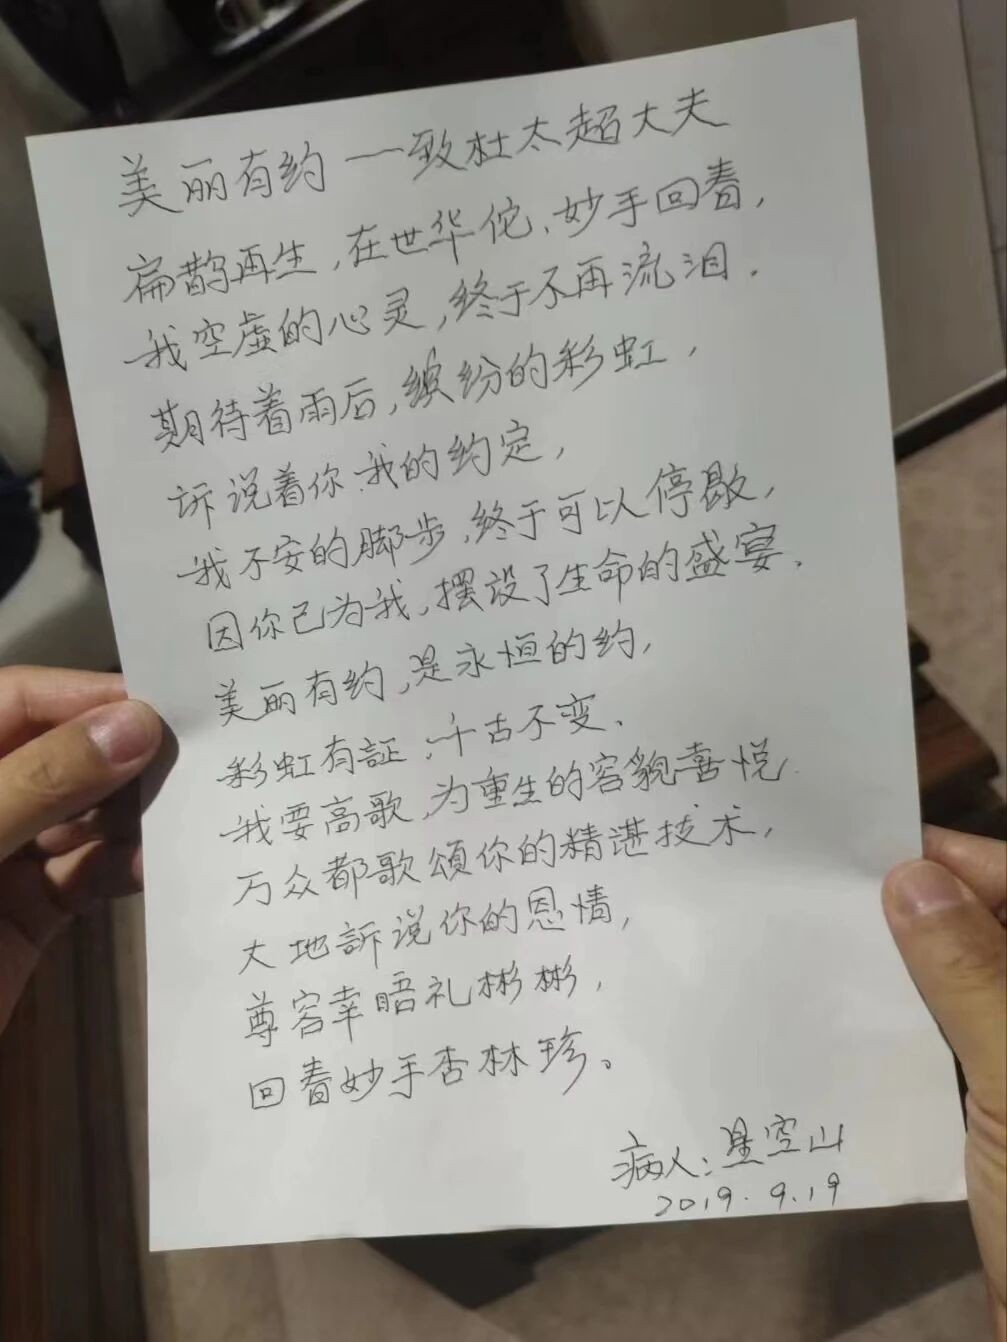 美丽有约一致杜太超大夫
扁鹊再生,在世华佗、妙手回春,
我空虚的心灵,终于不再流泪.
期待着雨后,缤纷的彩虹,
訴说着你、我的约定,
我不安的脚步,终于可以停歇,
因你已为我,摆设了生命的盛宴.
美丽有约,是永恒的约,
彩虹有証,千古不变.
我要高歌,为重生的容貌喜悦
万众都歌頌你的精湛技术,
大地訴说你的恩情,
尊容幸晤礼彬彬,
回春妙手杏林珍。
病人:星空山
2019.9.19